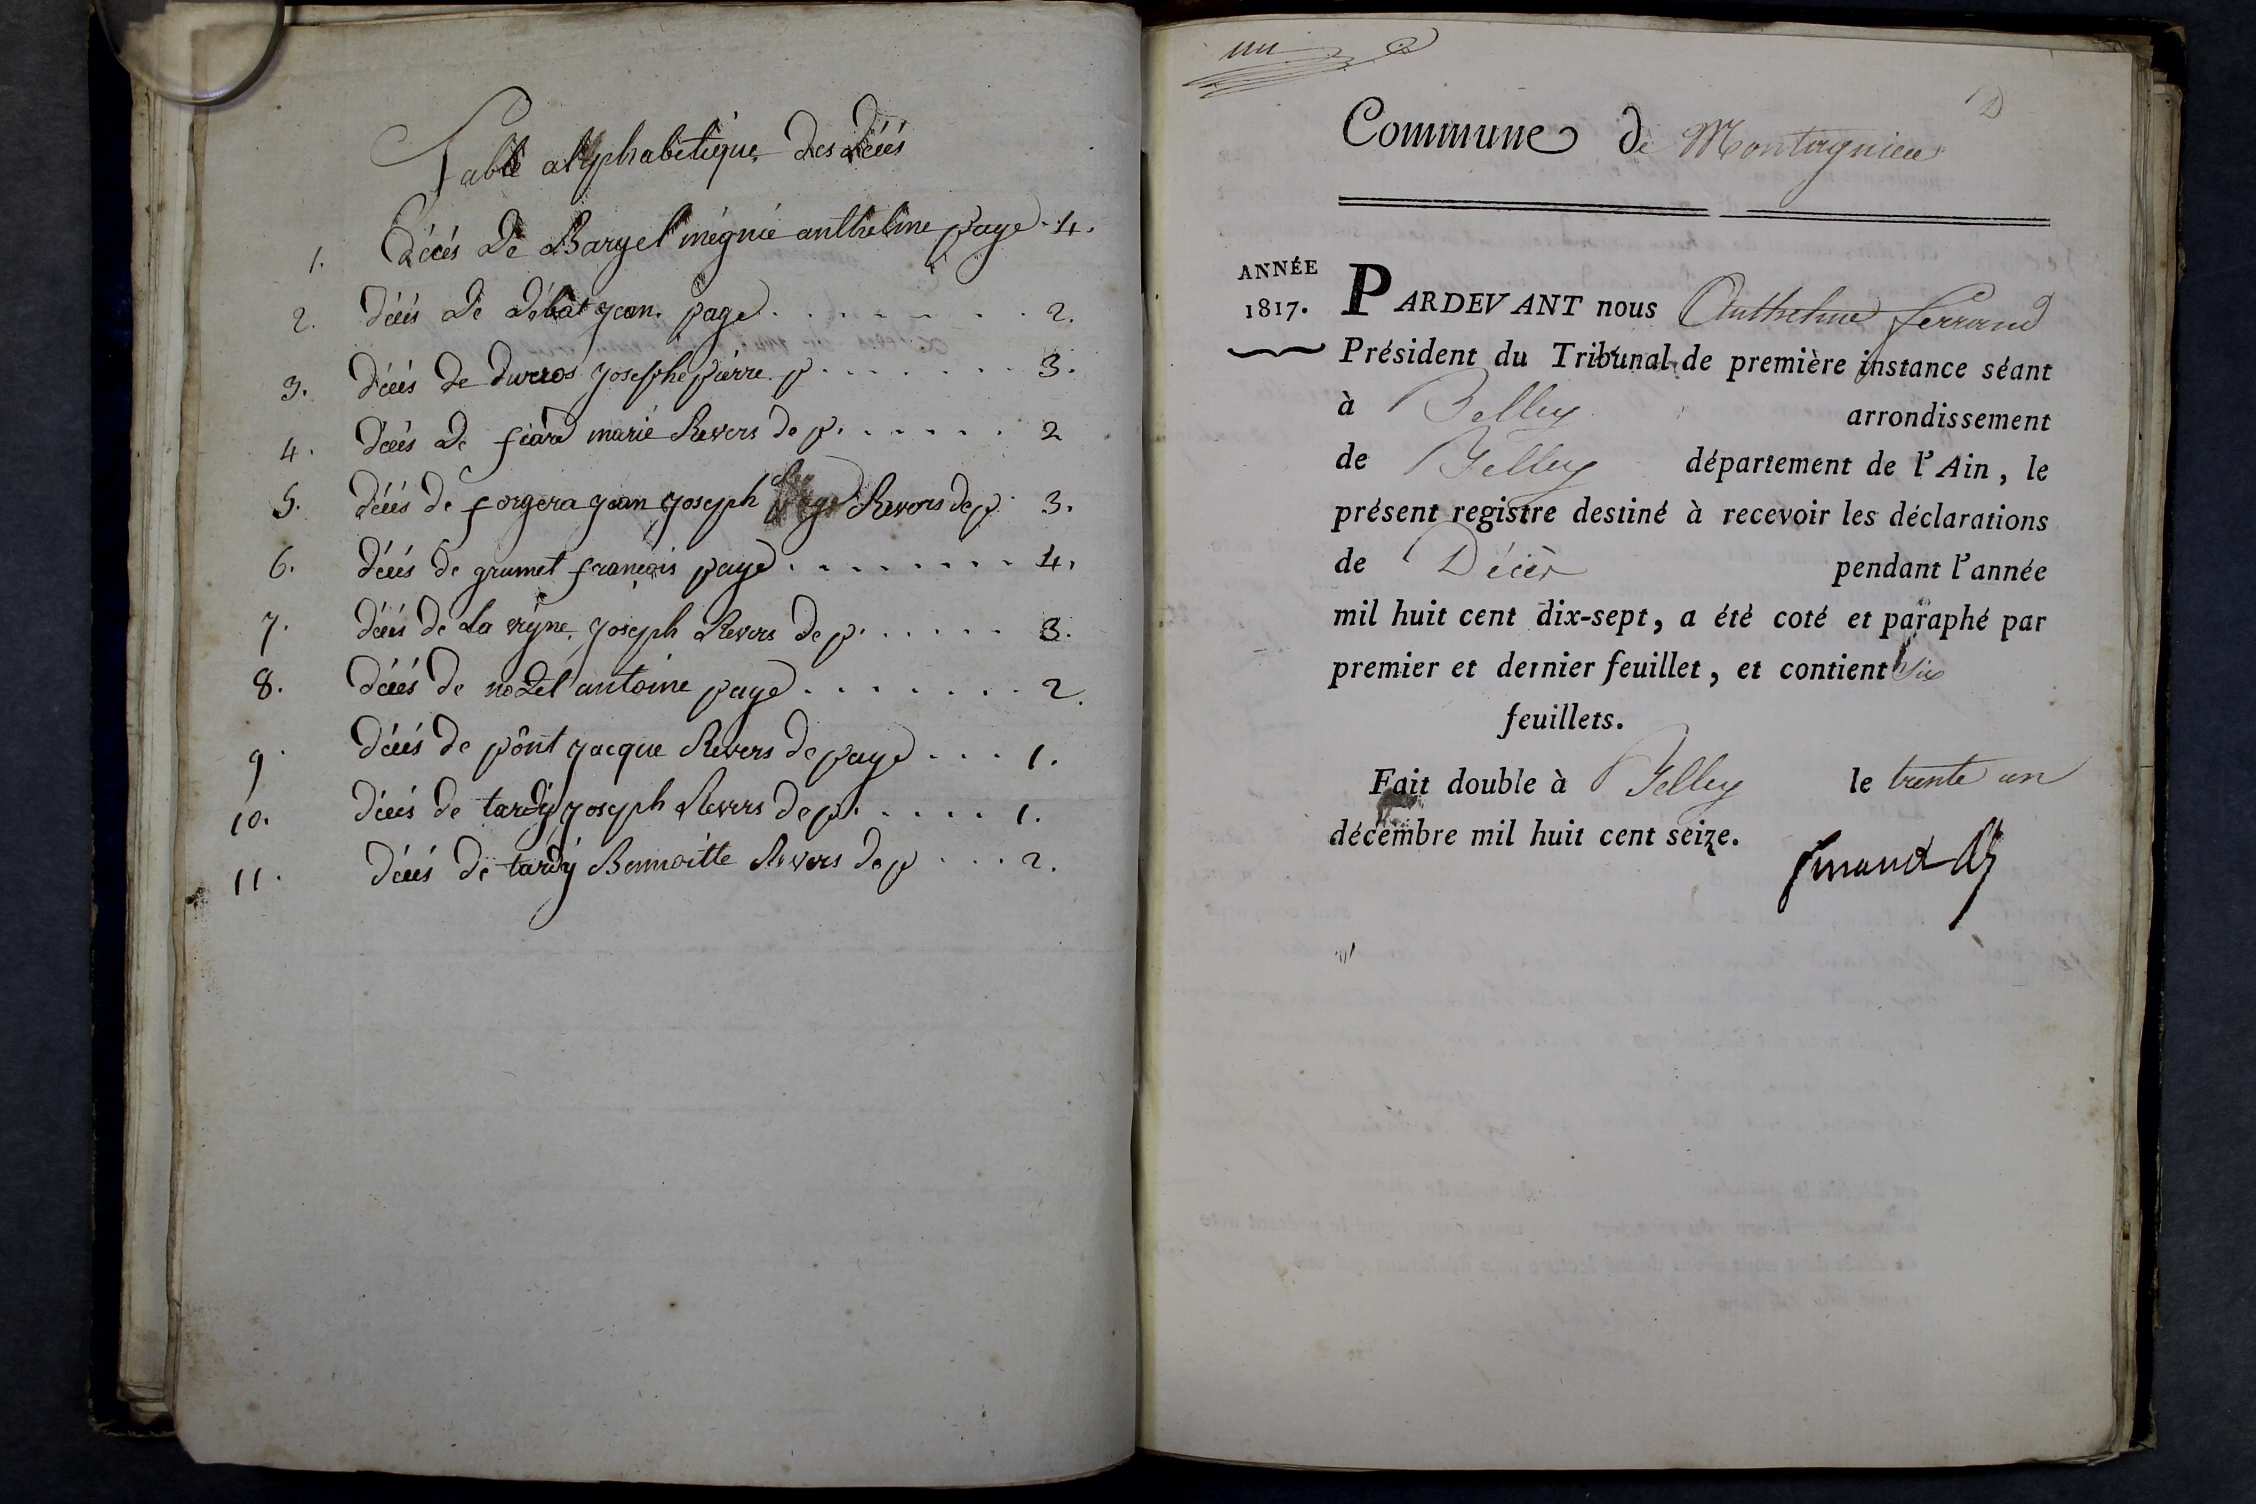 Table alphabetique des décés
1. Décés de Barget mégnié anthelme page . 4.
2. décés de débat jean page . . . . . . . . 2.
3. décés de ducros josephe pierre p . . . . . . . 3.
4. décés de féard marie Revers de p. . . . . . 2
5. décés de forgera jean joseph Revers de p. 3.
6. décés de grumet françois page . . . . . . . . 4.
7. décés de la vigne joseph Revers de p. . . . . . 3.
8. décés de nodet antoine page . . . . . . . 2.
9. décés de pônt jacque Revers de page . . . 1.
10. décés de tardÿ joseph Revers de p. . . . . 1.
11. décés de tardÿ Bennoitte Revers de p . . . 2.
un
Commune de Montagnieu
ANNÉE
1817.
PARDEVANT nous Anthelme ferrand
Président du Tribunal de première instance séant
à Belley arrondissement
de Belley département de l'Ain, le
présent registre destiné à recevoir les déclarations
de Décès pendant l'année
mil huit cent dix-sept, a été coté et paraphé par
premier et dernier feuillet, et contient Six
feuillets.
Fait double à Belley le trente un
décembre mil huit cent seize.